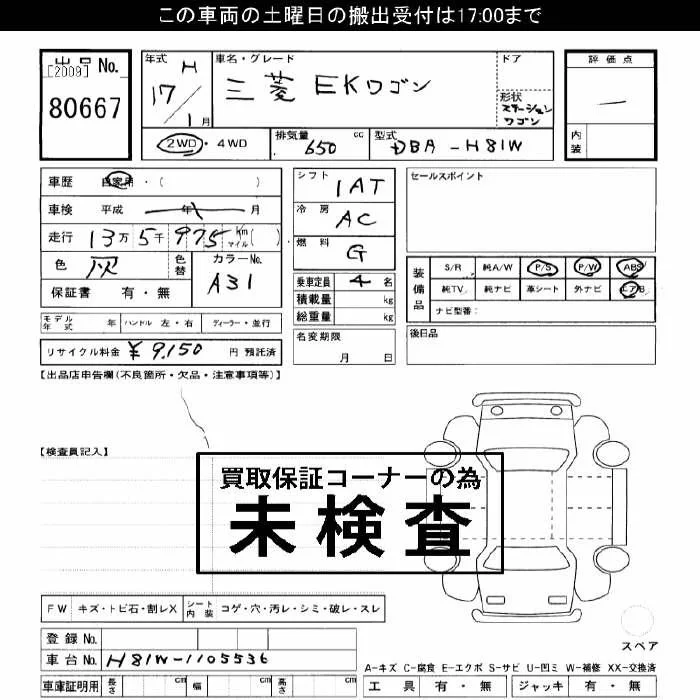 この車両の土曜日の搬出受付は17:00まで
出品 No.
[2009]
80667
年式 H 17 / 1 月
車名・グレード 三菱 EKワゴン
ドア
形状 ステーションワゴン
2WD・4WD
排気量 650 cc
型式 DBA-H81W
評価点 —
内装
車歴 自家用・( )
車検 平成 年 月
走行 13万5千975 km マイル( )
色 灰 色替 カラーNo. A31
保証書 有・無
モデル年式 年 ハンドル 左・右 ディーラー・並行
リサイクル料金 ¥9,150 円 預託済
シフト 1AT
冷房 AC
燃料 G
乗車定員 4 名
積載量 kg
総重量 kg
名変期限 月 日
セールスポイント
装備品 S/R 純A/W P/S P/W ABS
純TV 純ナビ 革シート 外ナビ エアB
ナビ型番:
後日品
【出品店申告欄(不良箇所・欠品・注意事項等)】
【検査員記入】
買取保証コーナーの為
未検査
FW キズ・トビ石・割レX シート内装 コゲ・穴・汚レ・シミ・破レ・スレ
登録 No.
車台 No. H81W-1105536
車庫証明用 長さ cm 幅 cm 高さ cm
スペア
A-キズ C-腐食 E-エクボ S-サビ U-凹ミ W-補修 XX-交換済
工具 有・無 ジャッキ 有・無